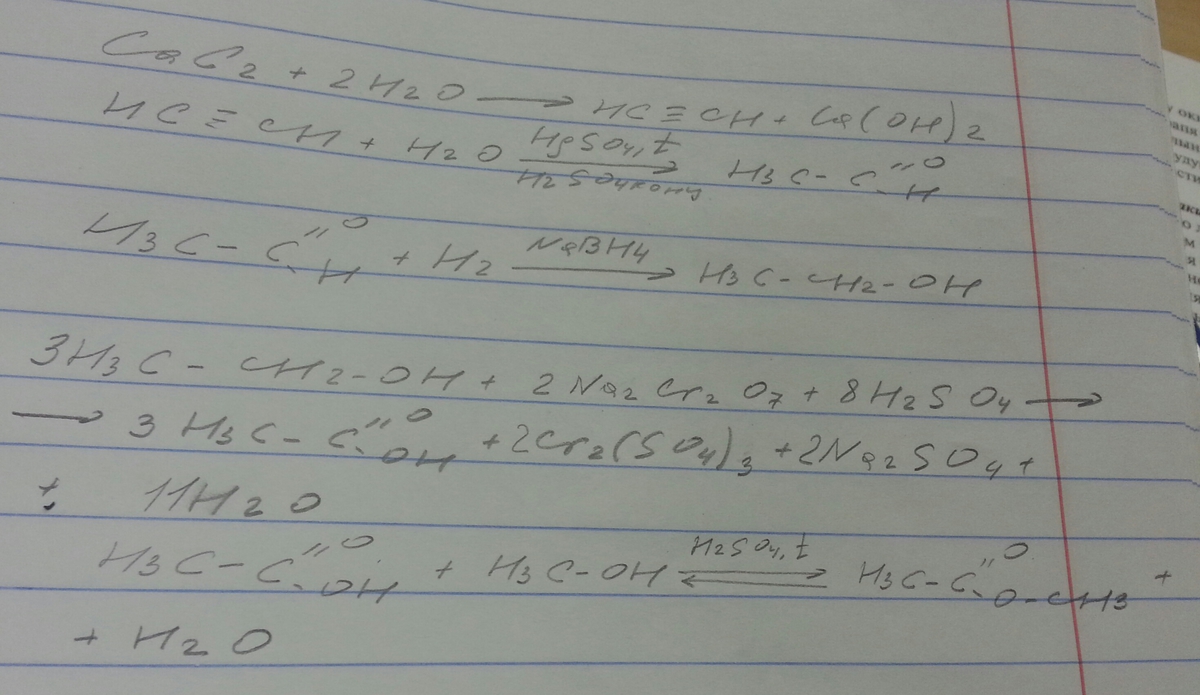 CaC2 + 2H2O → HC≡CH + Ca(OH)2
HC≡CH + H2O HgSO4, t → H2SO4конц H3C-C=O H
H3C-C=O H + H2 NaBH4 → H3C-CH2-OH
3H3C-CH2-OH + 2Na2Cr2O7 + 8H2SO4 →
→ 3H3C-C=O OH + 2Cr2(SO4)3 + 2Na2SO4 +
+ 11H2O
H3C-C=O OH + H3C-OH H2SO4, t ⇌ H3C-C=O O-CH3 +
+ H2O